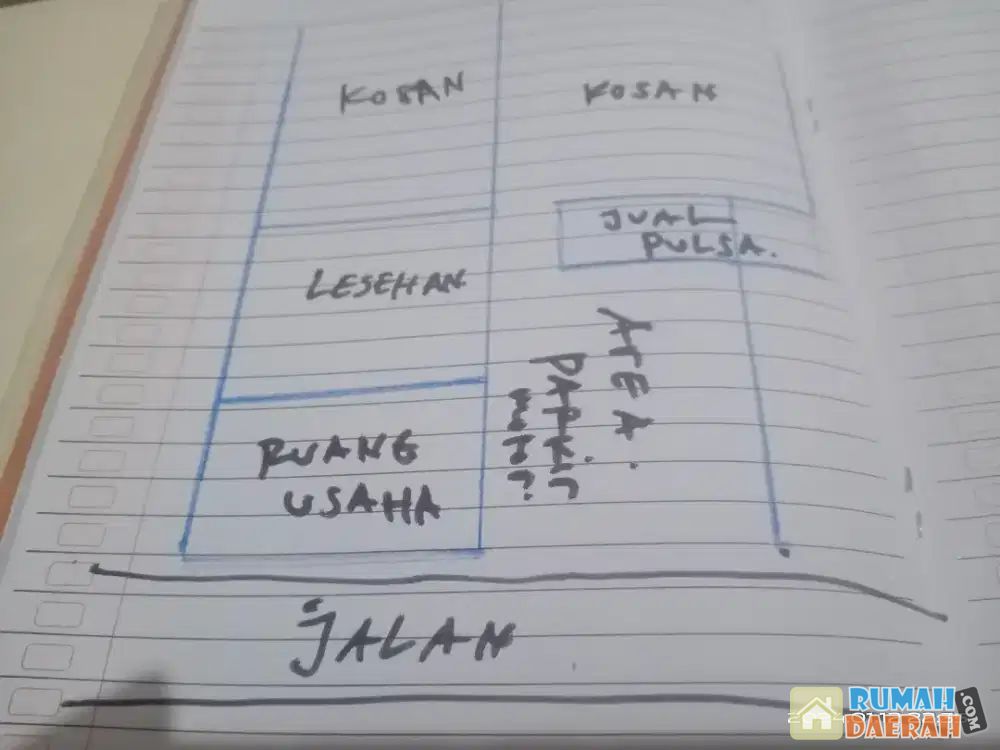 KOSAN
KOSAN
JUAL
PULSA.
LESEHAN
AREA.
PARKIR
RUANG
USAHA
JALAN
RUMAH
DAERAH
.COM